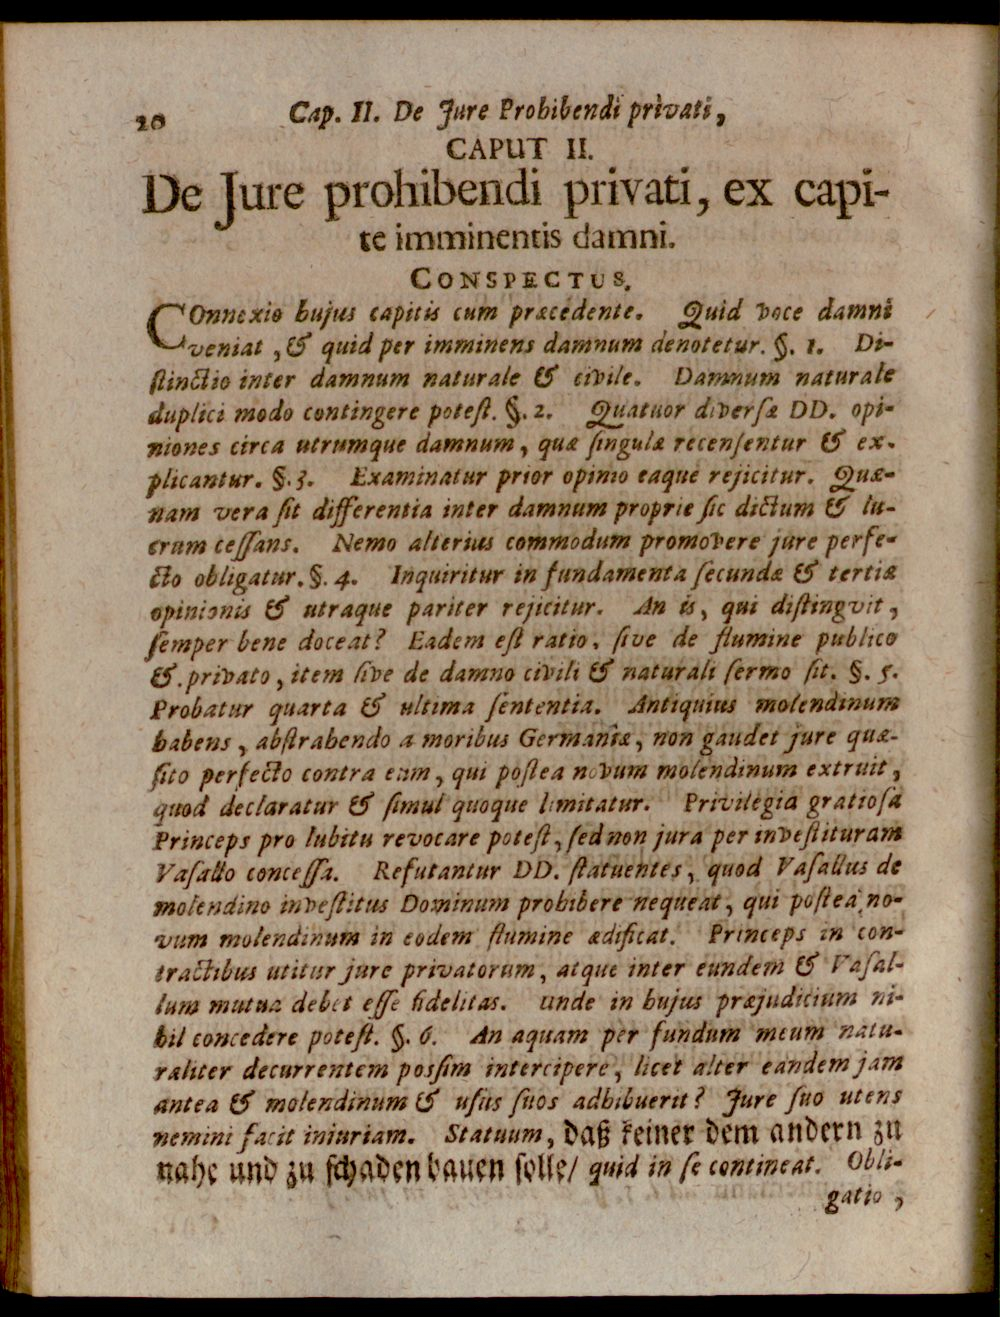 20 Cap. II. De Jure Prohibendi privati,
CAPUT II.
De Jure prohibendi privati, ex capi-
te imminentis damni.
CONSPECTUS.
COnnexio hujus capitis cum præcedente. Quid voce damni
veniat, & quid per imminens damnum denotetur. §. 1. Di-
ſtinctio inter damnum naturale & civile. Damnum naturale
duplici modo contingere poteſt. §. 2. Quatuor diverſæ DD. opi-
niones circa utrumque damnum, quæ ſingulæ recenſentur & ex-
plicantur. §. 3. Examinatur prior opinio eaque rejicitur. Quæ-
nam vera ſit differentia inter damnum proprie ſic dictum & lu-
crum ceſſans. Nemo alterius commodum promovere jure perfe-
cto obligatur. §. 4. Inquiritur in fundamenta ſecundæ & tertiæ
opinionis & utraque pariter rejicitur. An is, qui diſtingvit,
ſemper bene doceat? Eadem eſt ratio, ſive de flumine publico
&.privato, item ſive de damno civili & naturali ſermo ſit. §. 5.
Probatur quarta & ultima ſententia. Antiquius molendinum
habens, abſtrahendo a moribus Germaniæ, non gaudet jure quæ-
ſito perfecto contra eum, qui poſtea novum molendinum extruit,
quod declaratur & ſimul quoque limitatur. Privilegia gratioſa
Princeps pro lubitu revocare poteſt, ſed non jura per inveſtituram
Vaſallo conceſſa. Refutantur DD. ſtatuentes, quod Vaſallus de
molendino inveſtitus Dominum prohibere nequeat, qui poſtea no-
vum molendinum in eodem flumine ædificat. Princeps in con-
tractibus utitur jure privatorum, atque inter eundem & Vaſal-
lum mutua debet eſſe fidelitas. Unde in hujus præjudicium ni-
hil concedere poteſt. §. 6. An aquam per fundum meum natu-
raliter decurrentem posſim intercipere, licet alter eandem jam
antea & molendinum & uſus ſuos adhibuerit? Jure ſuo utens
nemini facit iniuriam. Statuum, daß keiner dem andern zu
nahe und zu ſchaden bauen ſolle/ quid in ſe contineat. Obli-
gatio,